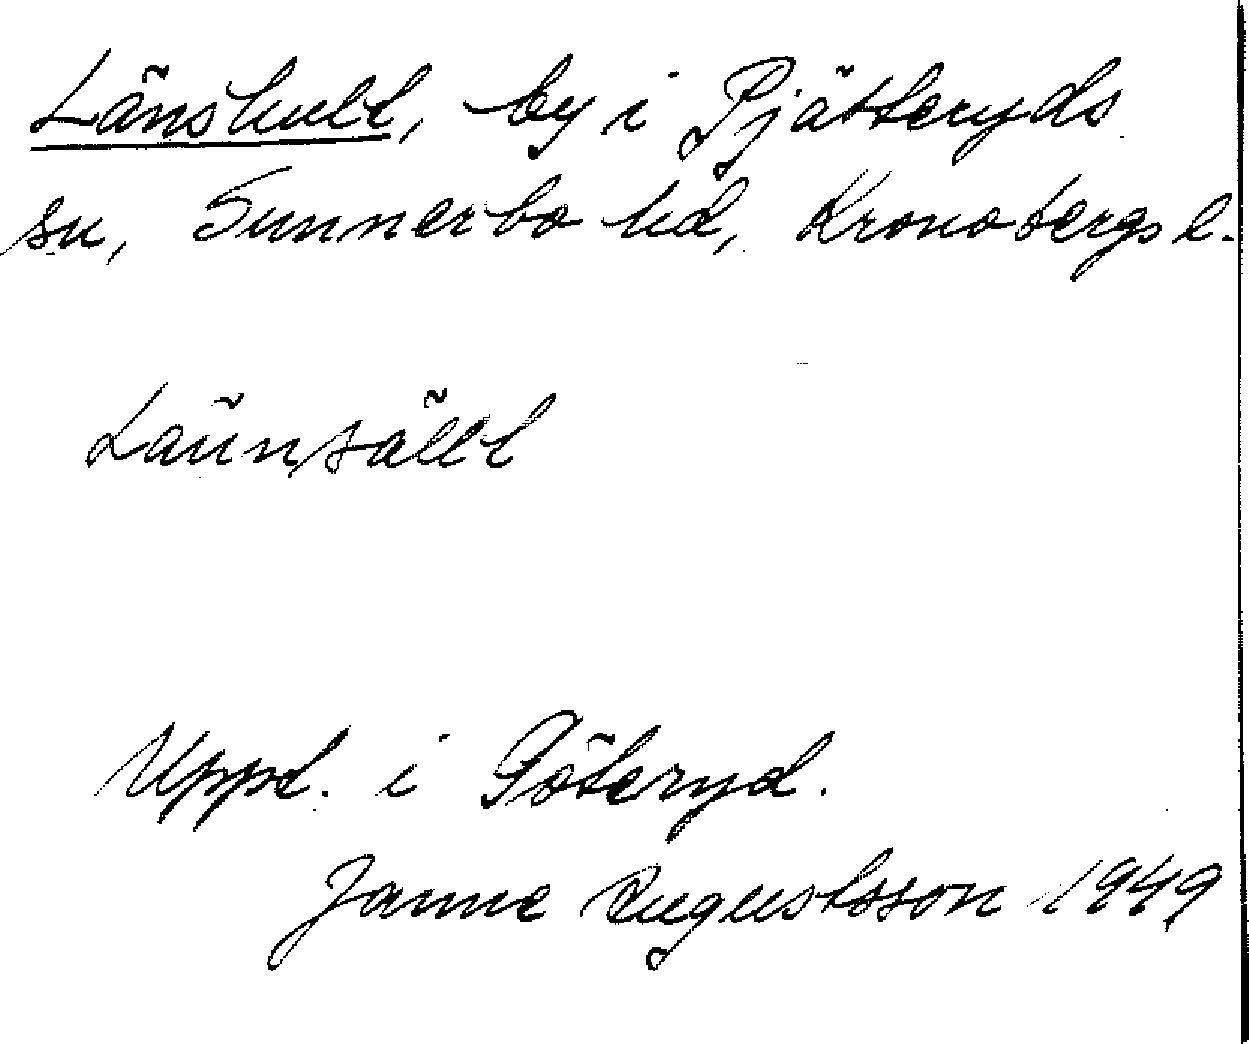 Länshult, by i Pjätteryds
sn, Sunnerbo hd, Kronobergs l.
Läünsällt
Uppt. i Göteryd.
Janne Augustsson 1949